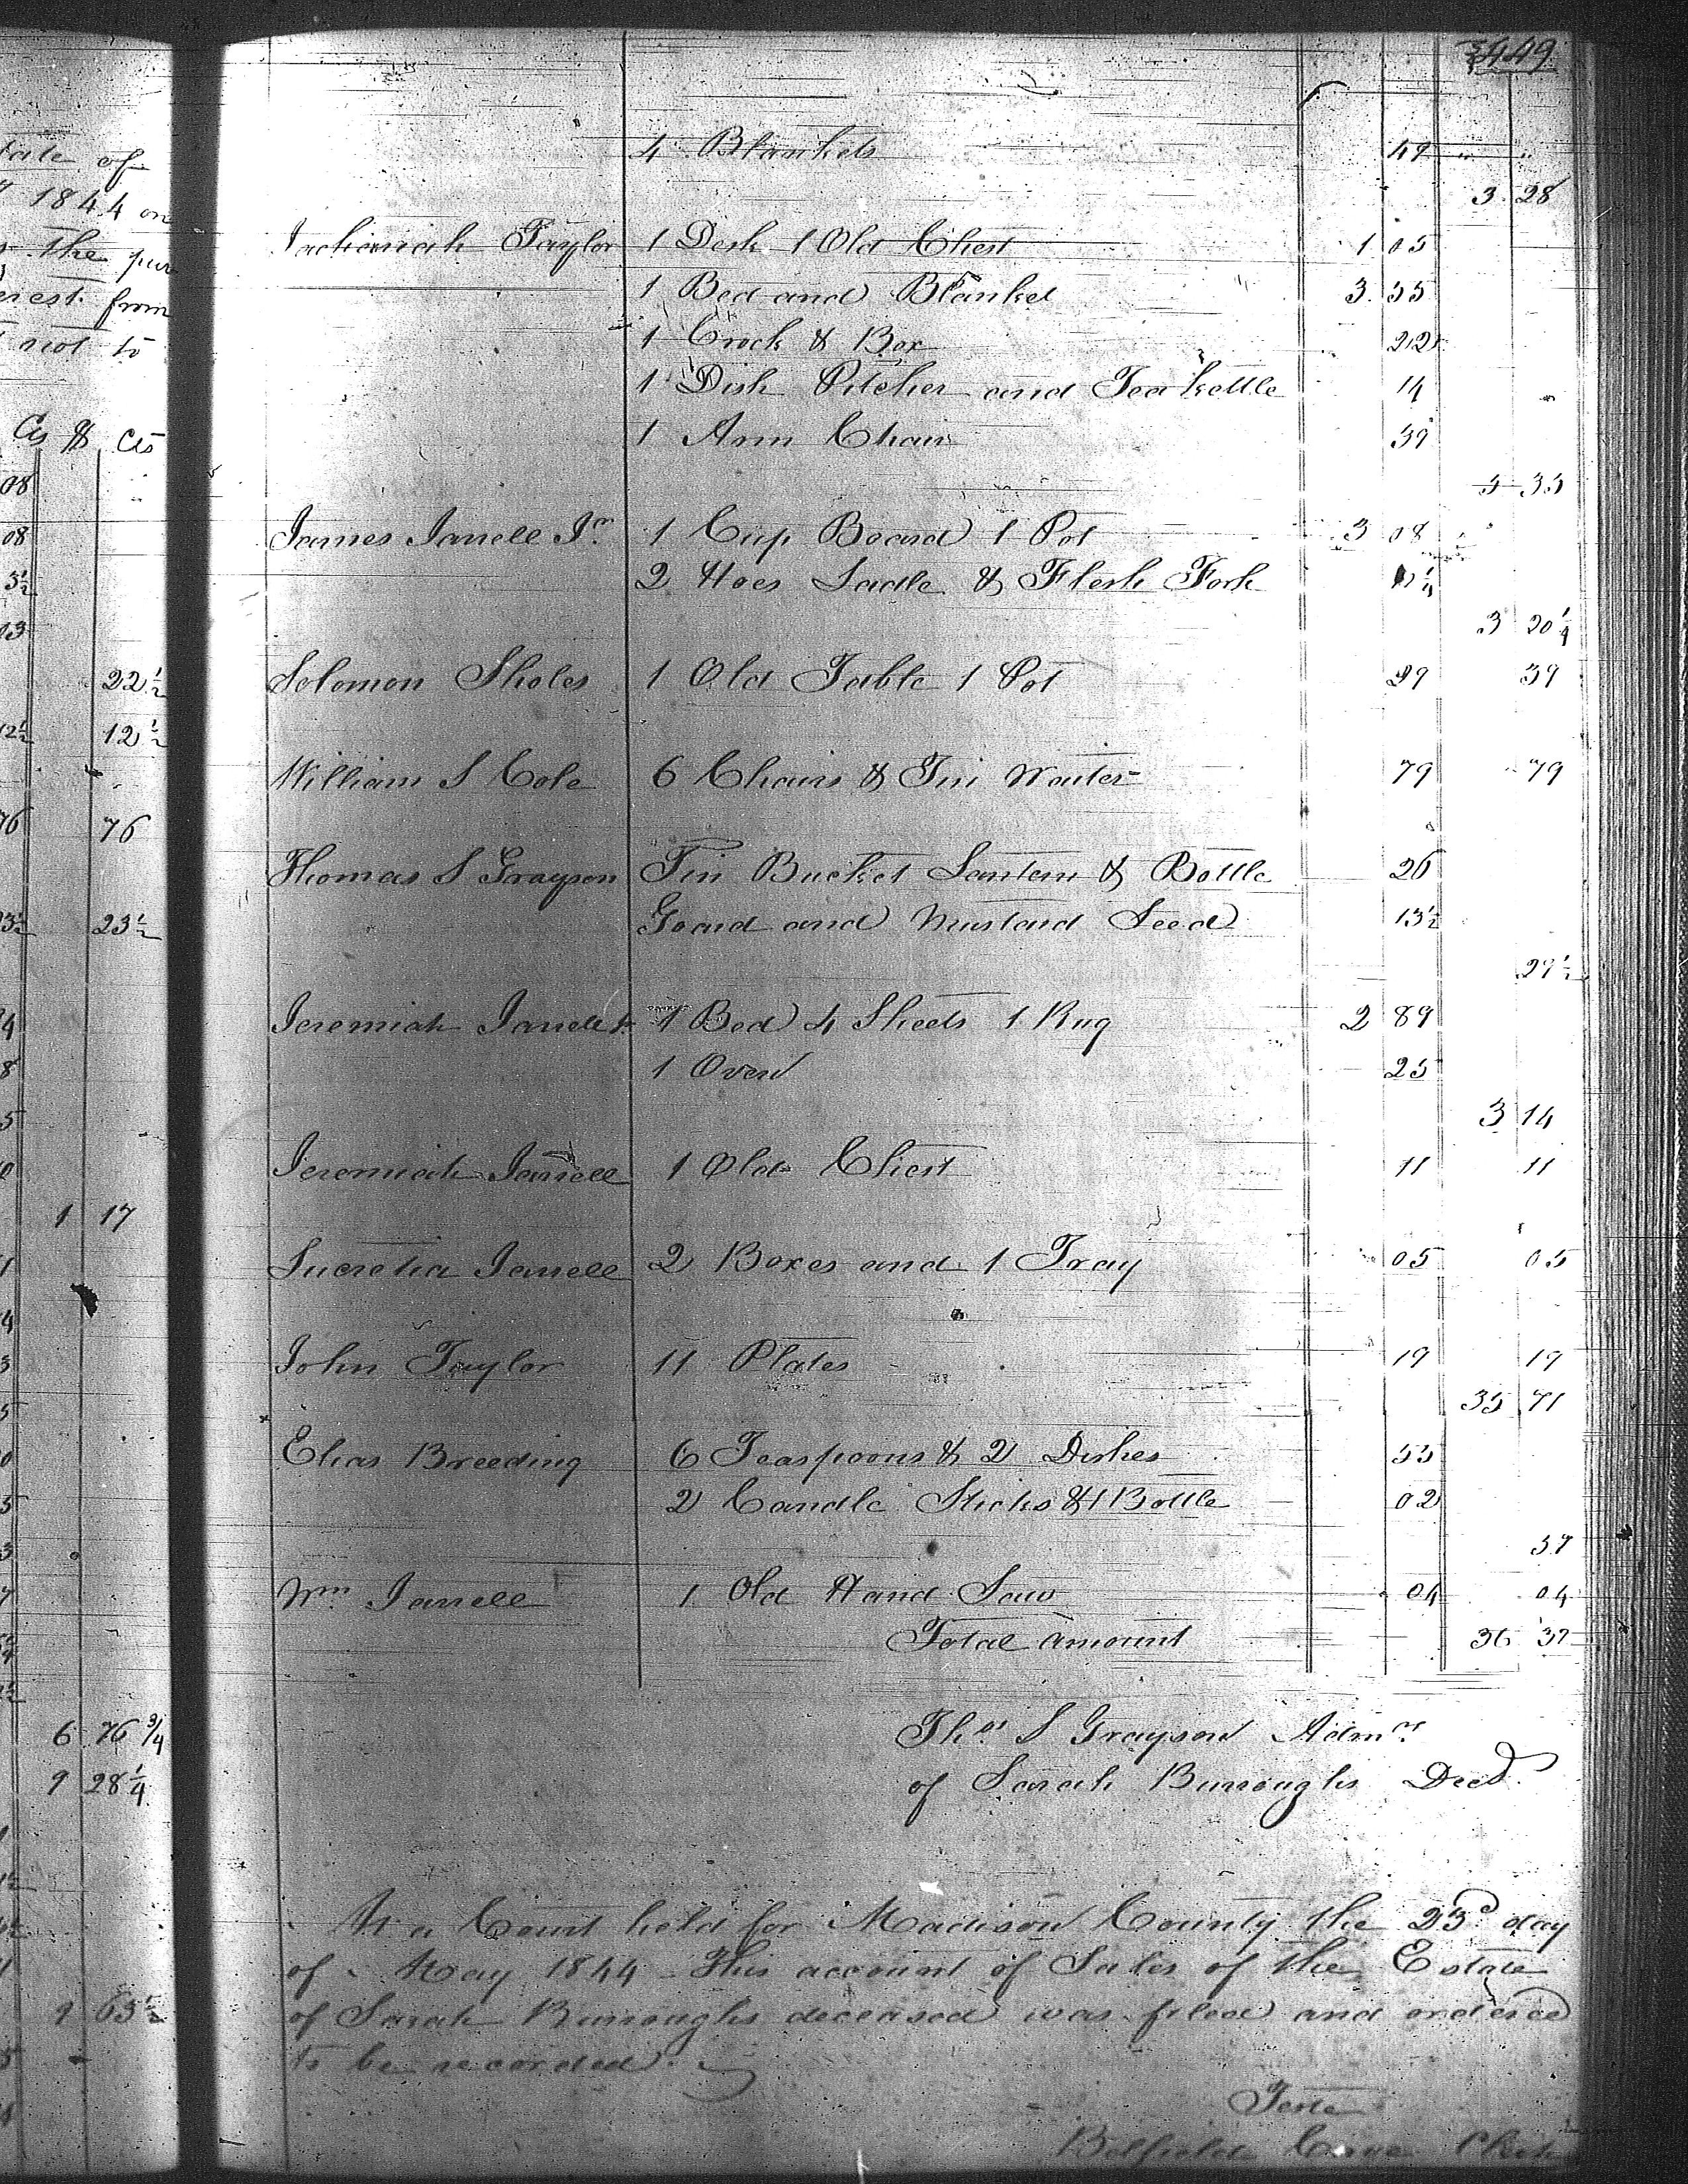 tate of
1844 on
the pur
erest from
not to
Cts $ Cts
08
08
3½
13
22½
12½ 12½
76 76
3½ 23½
4
8
5
0
1 17
6 76 ¾
9 28 ¼
9 65½
449
4 Blankets 49
3 28
Zachariah Taylor 1 Desk 1 Old Chest 1 05
1 Bed and Blanket 3 55
1 Crock & Box 22
1 Dish Pitcher and Tea kettle 14
1 Arm Chair 39
5 35
James Jarrell Jr. 1 Cup Board 1 Pot 3 08
2 Hoes Ladle & Flesh Fork 12¼
3 20¼
Solomon Sholes 1 Old Table 1 Pot 39 39
William S Cole 6 Chairs & Tin Waiter 79 79
Thomas S Grayson Tin Bucket Lantern & Bottle 26
Goard and Mustard Seed 13½
29½
Jeremiah Jarrell Jr 1 Bed 4 Sheets 1 Rug 2 89
1 Oven 25
3 14
Jeremiah Jarrell 1 Old Chest 11 11
Lucretia Jarrell 2 Boxes and 1 Tray 05 05
John Taylor 11 Plates 19 19
35 71
Elias Breeding 6 Teaspoons & 2 Dishes 55
2 Candle Sticks & 1 Bottle 02
57
Wm. Jarrell 1 Old Hand Saw 04 04
Total amount 36 32
Thos. S Grayson Admr.
of Sarah Burroughs Decd.
At a Court held for Madison County the 23d day
of May 1844 This account of Sales of the Estate
of Sarah Burroughs deceased was filed and ordered
to be recorded.
Teste
Belfield Cave Clerk